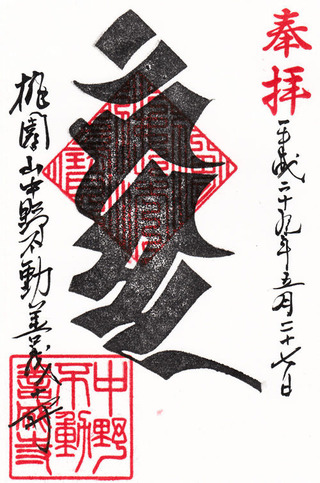 奉拝
平成二十九年五月二十七日
桃園山中野不動善成寺
中野
不動
善成寺